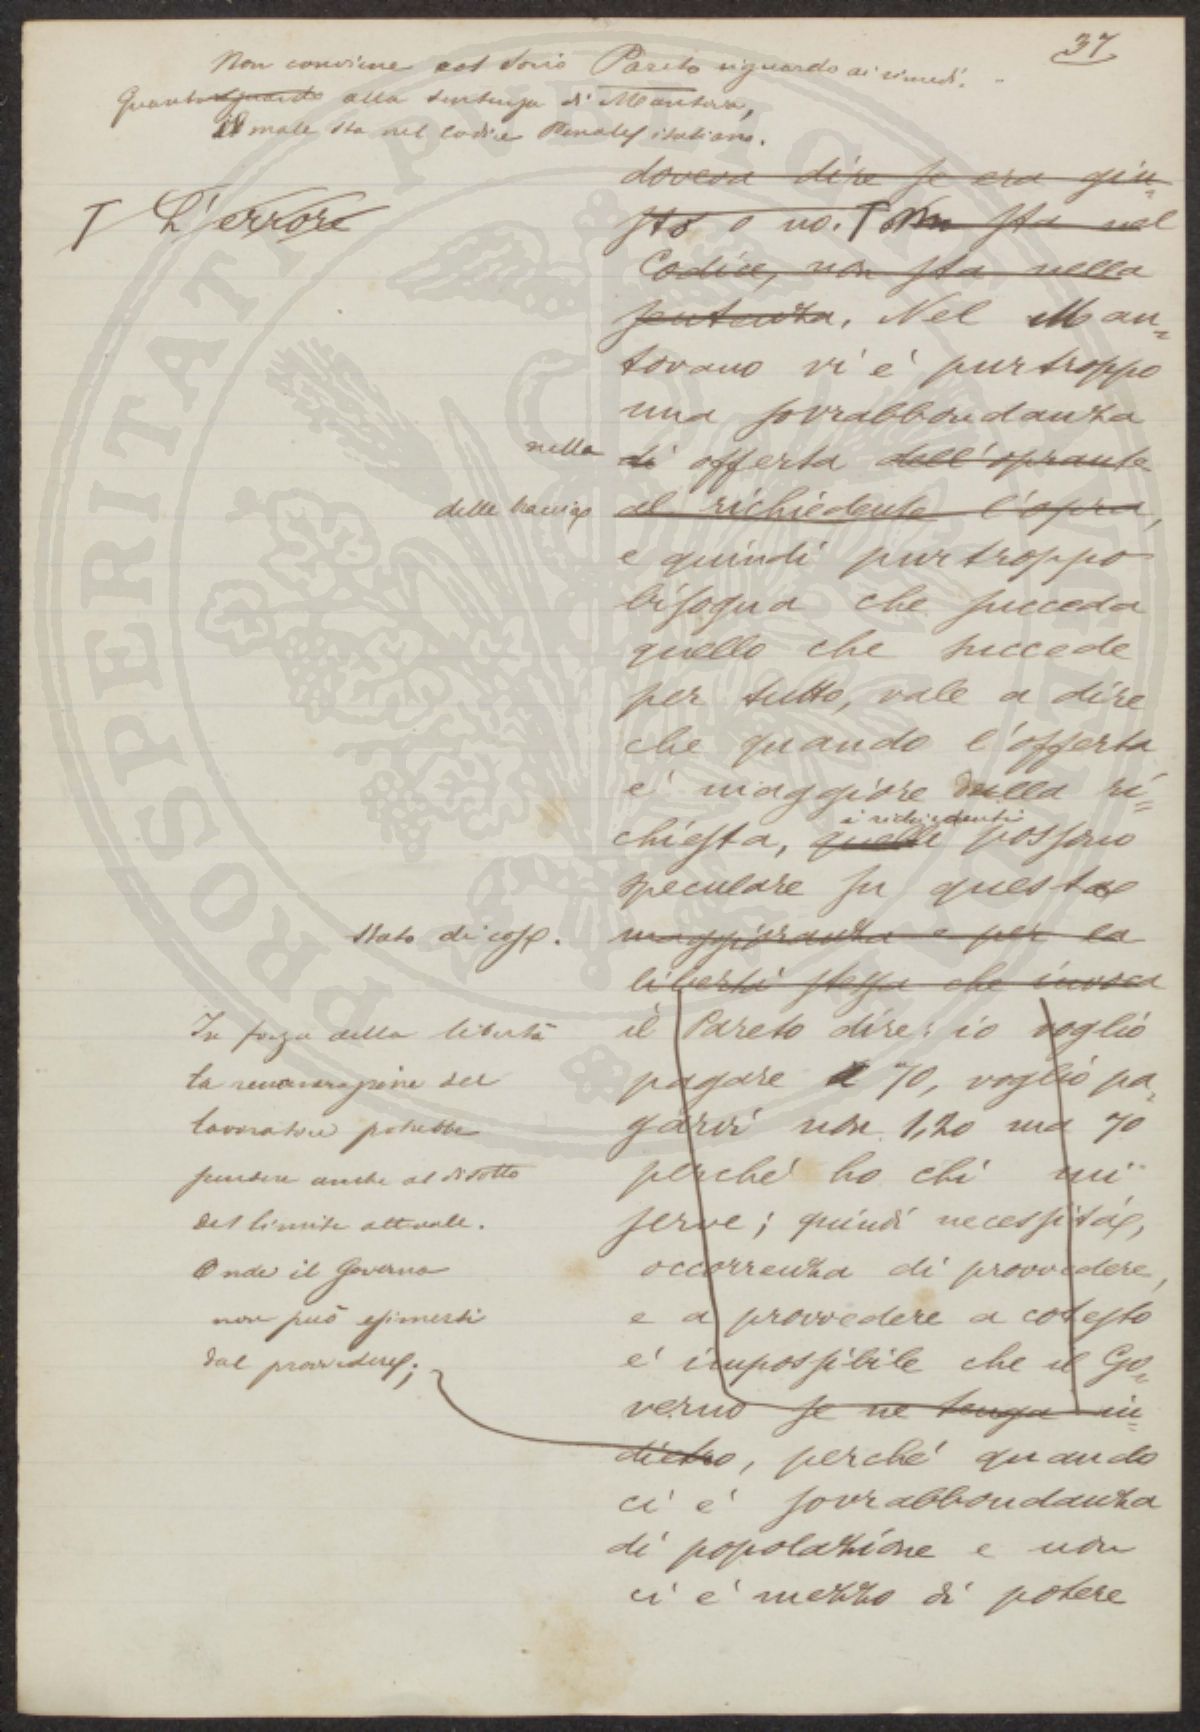 37
Non conviene col socio Pareto riguardo ai rimedi.
Quanto riguardo alla sentenza di Mantova,
il male sta nel Codice Penale italiano.
doveva dire se era giu-
sto o no. T Non sta nel
T L'errore
Codice, non sta nella
sentenza. Nel Man-
tovano vi è purtroppo
una sovrabbondanza
nella
di offerta dell'oprante
delle braccia
al richiedente l'opra,
e quindi purtroppo
bisogna che succeda
quello che succede
per tutto, vale a dire
che quando l'offerta
è maggiore della ri-
i richiedenti
chiesta, quelli possono
speculare su questa
stato di cose.
maggioranza e per la
libertà stessa che invoca
il Pareto dire: io voglio
pagare 70, voglio pa-
garvi non 1,20 ma 70
perché ho chi mi
serve; quindi necessità,
occorrenza di provvedere,
e a provvedere a cotesto
è impossibile che il Go-
verno se ne tenga in-
dietro, perché quando
ci è sovrabbondanza
di popolazione e non
ci è mezzo di potere
In forza della libertà
la remunerazione del
lavoratore potrebbe
scendere anche al disotto
del limite attuale.
Onde il Governo
non può esimersi
dal provvedere;
PROSPERITATI PUBLICAE